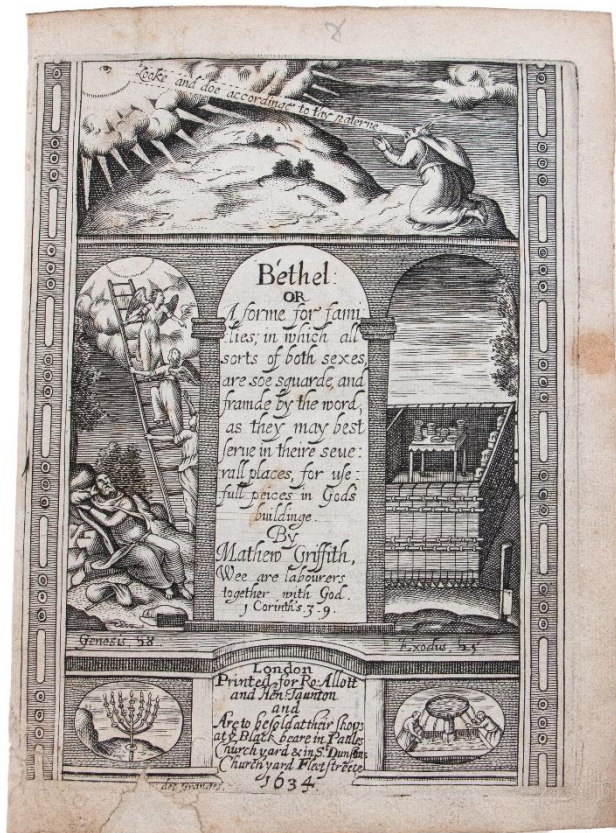 Looke and doe accordinge to thy paterne
Bethel:
OR
A forme for fami-
lies; in which all
sorts of both sexes,
are soe squarde, and
framde by the word,
as they may best
serue in theire seue:
rall places, for use-
full peices in Gods
buildinge.
By
Mathew Griffith,
Wee are labourers
together with God.
1 Corinth's 3-9.
Genesis, 28
Exodus, 25
London
Printed for Ro: Allott
and Hen: Taunton
and
Are to be sold at their shops
at ye Black beare in Paules
Church yard & in St Dunstans
Church yard Fleetstreete
1634
des Granges.